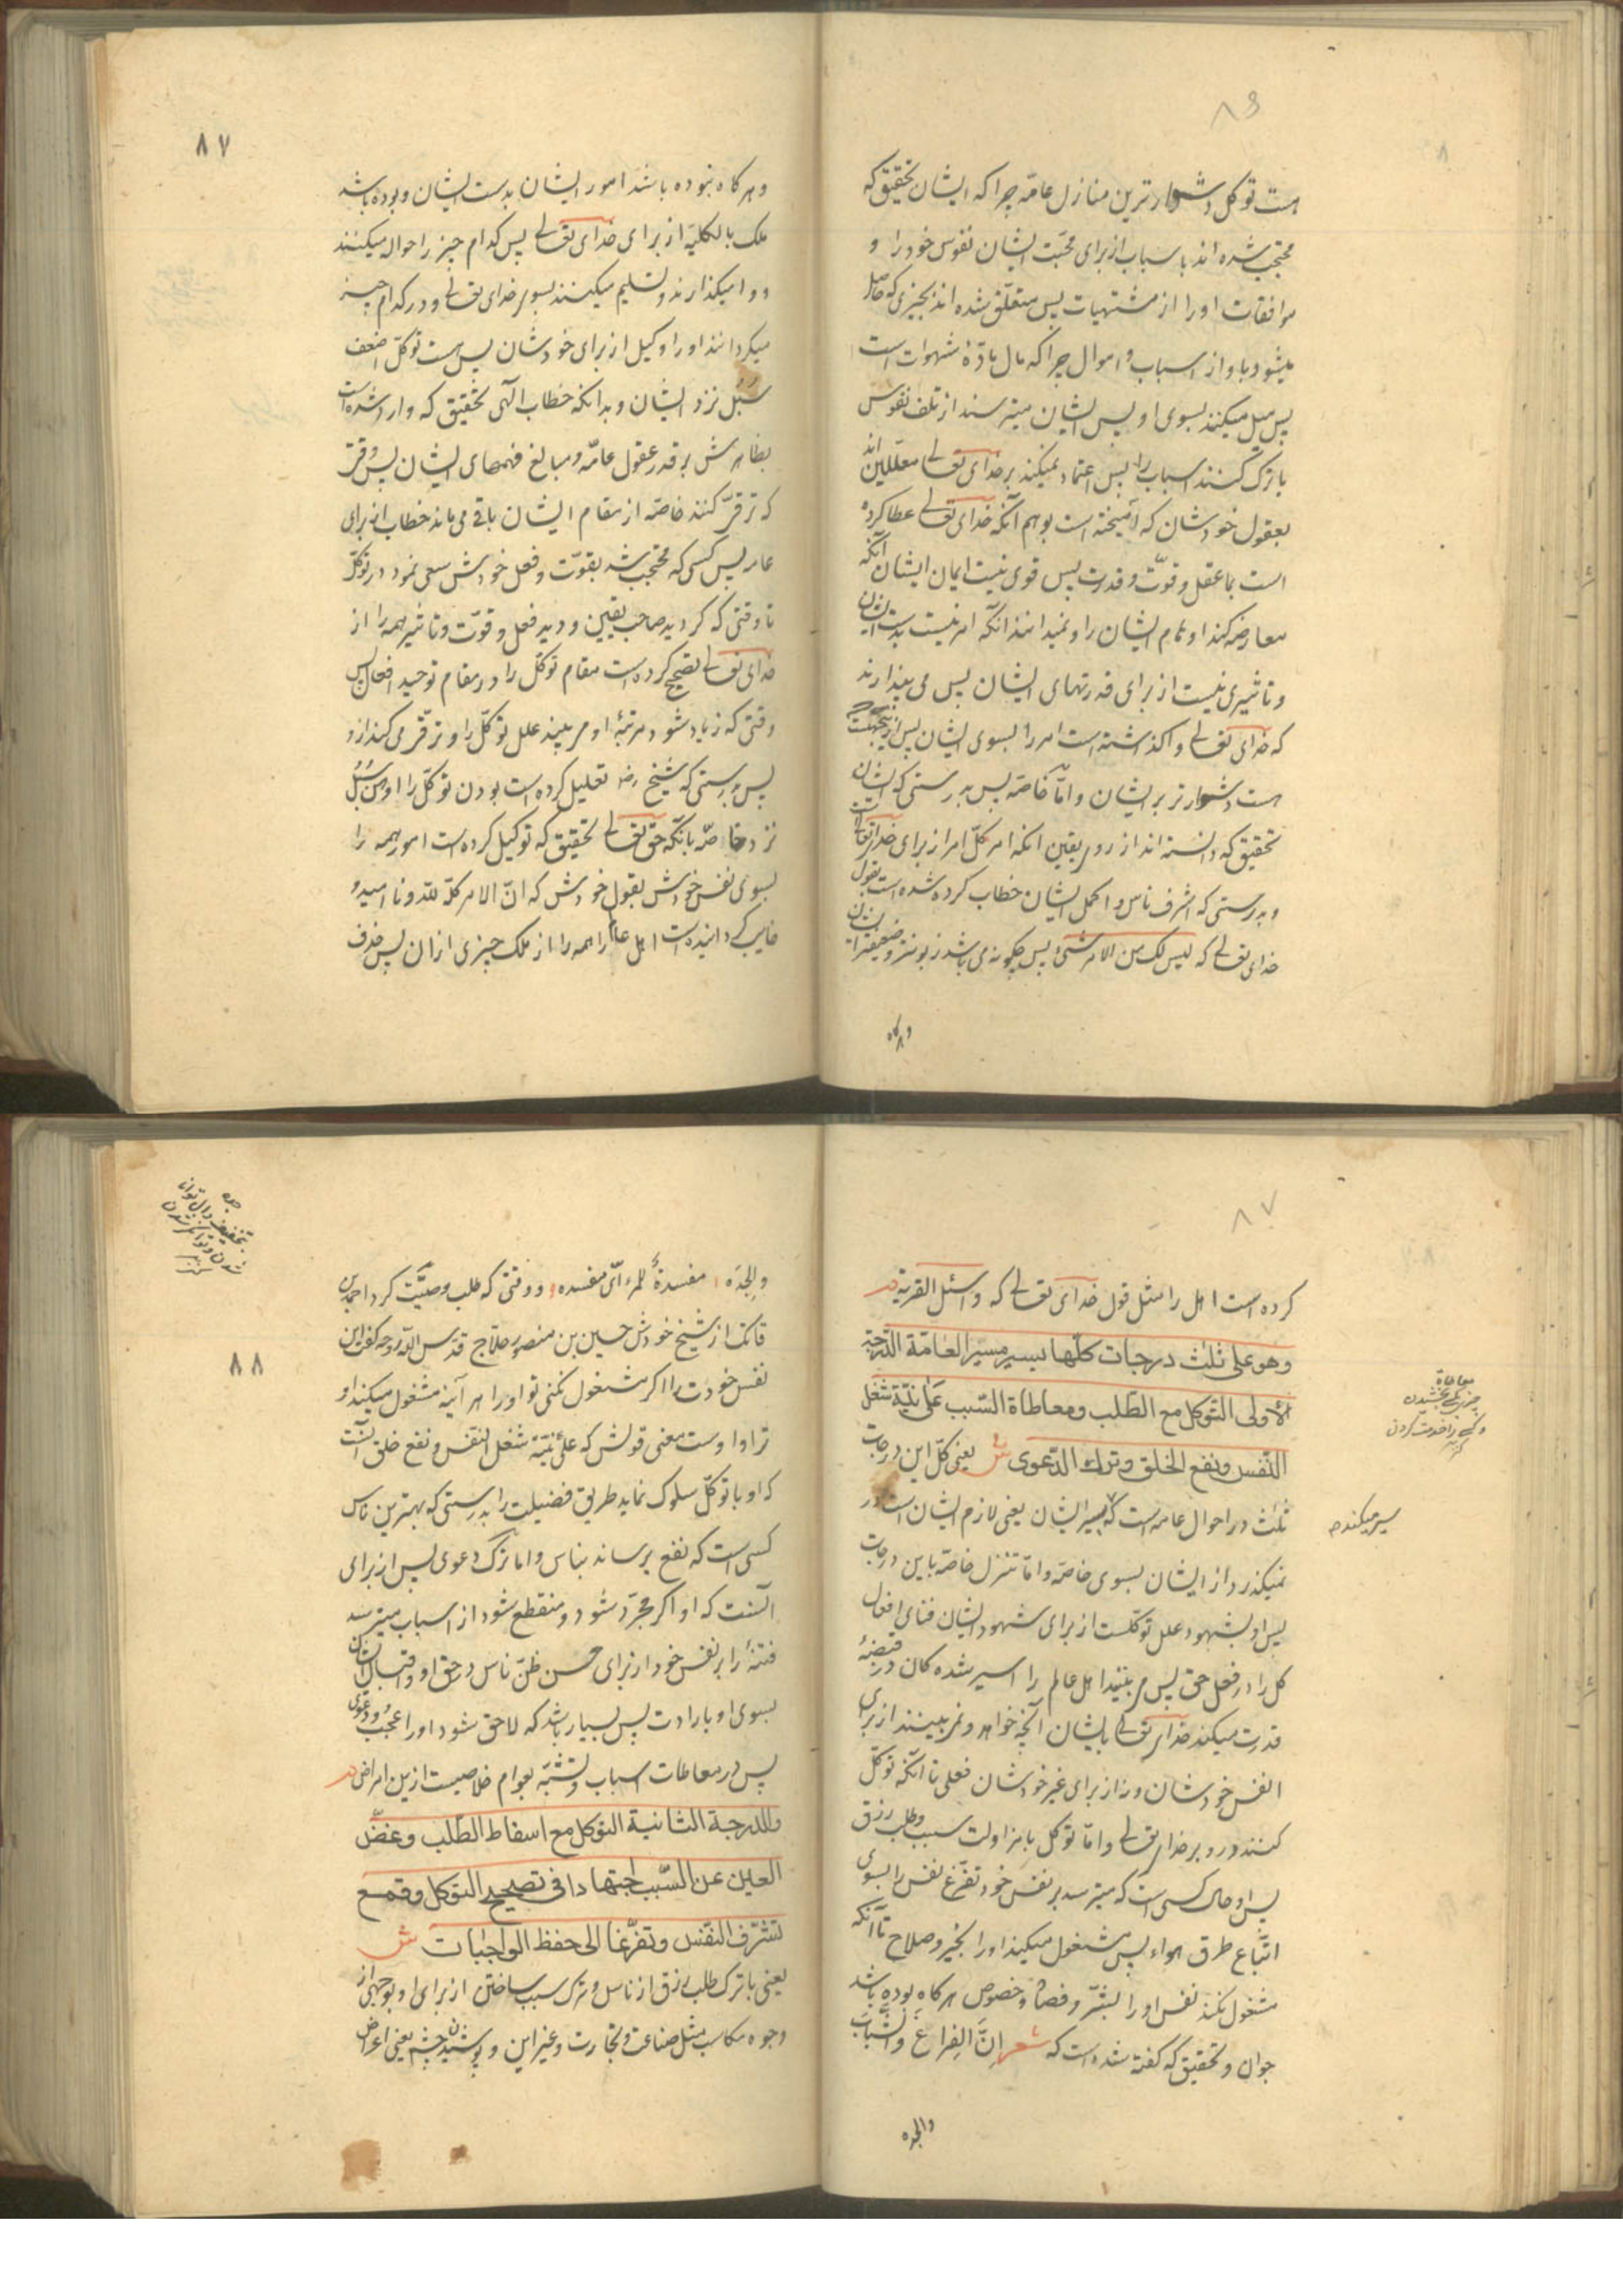 ۸۶
است توکل دشوارترین منازل عامّه چرا که ایشان تحقیق که
محتجب شده اند باسباب از برای محبّت ایشان نفوس خود را و
موافقات او را از مشتهیات پس متعلّق شده اند بچیزی که حاصل
میشود باو از اسباب و اموال چرا که مال مادّهٔ شهوات است
پس میل میکنند بسوی او پس ایشان میترسند از تلف نفوس
با ترک کنند اسباب را پس اعتماد نمیکنند بر خدای تعالی معلّلین اند
بعقول خودشان که آمیخته است بوهم آنکه خدای تعالی عطا کرده
است بما عقل و قوّت و قدرت پس قوی نیست ایمان ایشان آنکه
معارضه کند اوهام ایشان را و نمیدانند آنکه امر نیست بدست ایشان
و تاثیری نیست از برای قدرتهای ایشان پس می پندارند
که خدای تعالی واگذاشته است امر را بسوی ایشان پس از این جهت
است دشوارتر بر ایشان و امّا خاصّه پس بدرستی که ایشان
تحقیق که دانسته اند از روی یقین آنکه امر کلّ امر از برای خدای تعالی است
و بدرستی که اشرف ناس و اکمل ایشان خطاب کرده شده است بقول
خدای تعالی که لیس لک من الامر شیء پس چگونه می باشد زبونتر و ضعیفتر
و هرگاه
۸۷
و هرگاه نبوده باشد امور ایشان بدست ایشان و بوده باشد
ملک بالکلیّه از برای خدای تعالی پس کدام چیز را حوال میکنند
و وامیگذارند و تسلیم میکنند بسوی خدای تعالی و در کدام چیز
میگردانند او را وکیل از برای خودشان پس است توکّل اضعف
سُبُل نزد ایشان و بدانکه خطاب الهی تحقیق که وارد شده است
بظاهرش بر قدر عقول عامّه و مبالغ فهمهای ایشان پس وقتی
که ترقّی کنند خاصّه از مقام ایشان باقی می ماند خطاب از برای
عامه پس کسی که محتجب شد بقوّت و فعل خودش سعی نمود در توکّل
تا وقتی که گردید صاحب یقین و دید فعل و قوّت و تاثیر همه را از
خدای تعالی تصحیح کرده است مقام توکّل را در مقام توحید افعال پس
وقتی که زیاد شود مرتبهٔ او می بیند علل توکّل را و ترقّی می کند از او
پس بدرستی که شیخ رضه تعلیل کرده است بودن توکّل را اوهن سُبُل
نزد خاصّه بانکه حق تعالی تحقیق که توکیل کرده است امور همه را
بسوی نفس خودش بقول خودش که انّ الامر کلّه للّه و ناامید و
خایب گردانیده است اهل عالم را همه را از ملک چیزی از ان پس حذف
۸۷
کرده است اهل را مثل قول خدای تعالی که و اسئل القریة
وهو علی ثلث درجات کلّها یسیر مسیر العامّة الدّرجة
الأولی التّوکل مع الطّلب ومعاطاة السّبب علی نیّة شغل
النّفس ونفع الخلق وترک الدّعوی ش یعنی کلّ این درجات
ثلث در احوال عامه است که یسیر ایشان یعنی لازم ایشان است و در
نمیگذرد از ایشان بسوی خاصّه و امّا تنزل خاصّه باین درجات
پس او بشهود علل توکّلست از برای شهود ایشان فنای افعال
کل را در فعل حق پس می بینند اهل عالم را اسیر شده گان در قبضهٔ
قدرت میکند خدای تعالی بایشان آنچه خواهد و نمی بینند از برای
انفس خودشان و نه از برای غیر خودشان فعلی تا آنکه توکّل
کنند در او بر خدای تعالی و امّا توکل با مزاولت سبب و طلب رزق
پس او حال کسی است که میترسد بر نفس خود تفرّغ نفس را بسوی
اتّباع طرق هواء پس مشغول میکند او را بخیر و صلاح تا آنکه
مشغول نکند نفس او را بشرّ و فضا و خصوص هرگاه بوده باشد
جوان و تحقیق که گفته شده است که شعر إنَّ الفراغَ والشَّبابَ
والجده
معاطاة
چیزی بکسی بخشیدن
و کسی را خدمت کردن
کنز
سیر میکند صح
جده
بتخفیف دال توانا
شدن و توانگر شدن
کنز
۸۸
والجِدَه مفسدةٌ للمرء اَیّ مفسده و وقتی که طلب وصیّت کرد احمد بن
فاتک از شیخ خودش حسین بن منصور حلاج قدّس اللّه روحه گفت این
نفس خودت را اگر مشغول نکنی تو او را هر آینه مشغول میکند او
ترا و اوست معنی قولش که علی نیّة شغل النفس و نفع خلق آنست
که او با توکّل سلوک نماید طریق فضیلت را بدرستی که بهترین ناس
کسی است که نفع برساند بناس و اما ترک دعوی پس از برای
آنست که او اگر مجرّد شود و منقطع شود از اسباب میترسد
فتنه را بر نفس خود از برای حسن ظنّ ناس در حق او و اقبال ایشان
بسوی او بارادت پس بسیار باشد که لاحق شود او را عُجب و دعوی
پس در معاطات اسباب و تشبّه بعوام خلاصیست ازین امراض
والدرجة الثانیة التوکل مع اسقاط الطّلب وغضّ
العین عن السّبب اجتهادا فی تصحیح التوکل وقمع
تشرّف النّفس وتفرّغا الی حفظ الواجبات ش
یعنی با ترک طلب رزق از ناس و ترک سبب ساختن از برای او بوجهی از
وجوه مکاسب مثل صناعت و تجارت و غیر این و پوشیدن چشم یعنی اعراض